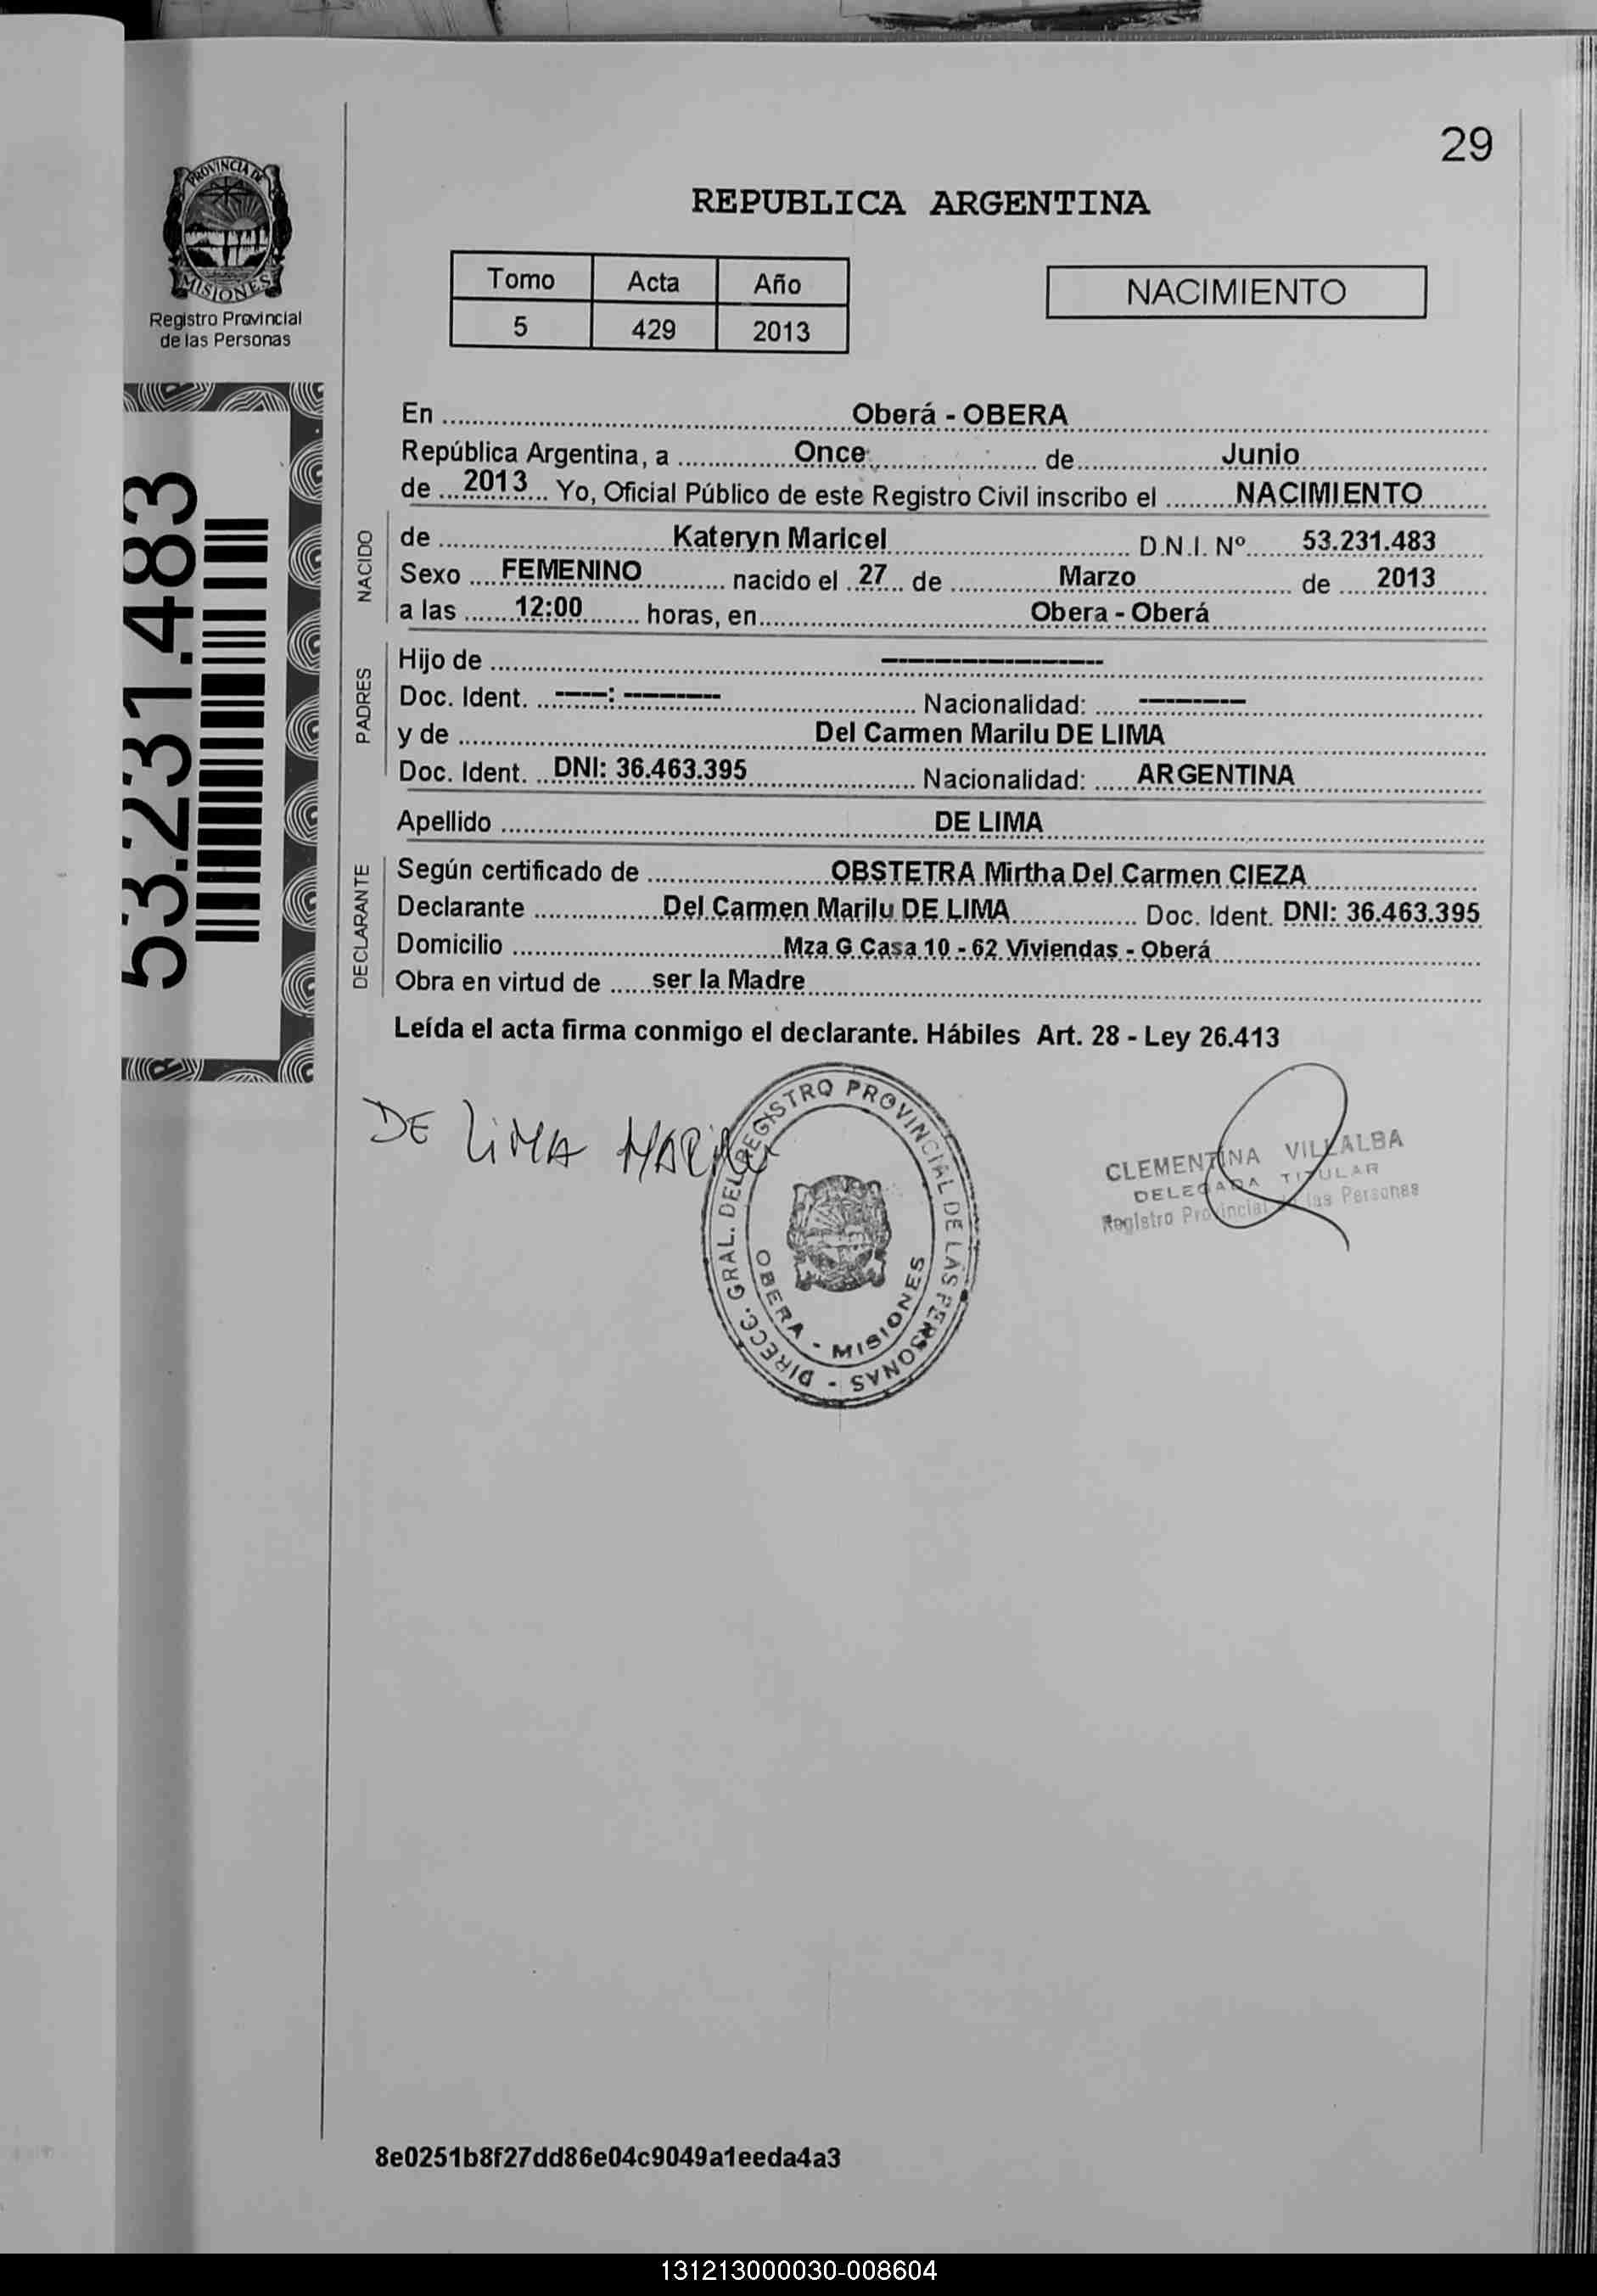 29
PROVINCIA DE
MISIONES
Registro Provincial
de las Personas
REPUBLICA ARGENTINA
Tomo Acta Año
5 429 2013
NACIMIENTO
53.231.483
En Oberá - OBERA
República Argentina, a Once de Junio
de 2013 Yo, Oficial Público de este Registro Civil inscribo el NACIMIENTO
NACIDO
de Kateryn Maricel D.N.I. Nº 53.231.483
Sexo FEMENINO nacido el 27 de Marzo de 2013
a las 12:00 horas, en Obera - Oberá
PADRES
Hijo de --------------------
Doc. Ident. -----: --------- Nacionalidad: ----------
y de Del Carmen Marilu DE LIMA
Doc. Ident. DNI: 36.463.395 Nacionalidad: ARGENTINA
Apellido DE LIMA
DECLARANTE
Según certificado de OBSTETRA Mirtha Del Carmen CIEZA
Declarante Del Carmen Marilu DE LIMA Doc. Ident. DNI: 36.463.395
Domicilio Mza G Casa 10 - 62 Viviendas - Oberá
Obra en virtud de ser la Madre
Leída el acta firma conmigo el declarante. Hábiles Art. 28 - Ley 26.413
DE LiMA MARilu
DIRECC. GRAL. DEL REGISTRO PROVINCIAL DE LAS PERSONAS -
OBERA - MISIONES
CLEMENTINA VILLALBA
DELEGADA TITULAR
Registro Provincial de las Personas
8e0251b8f27dd86e04c9049a1eeda4a3
131213000030-008604